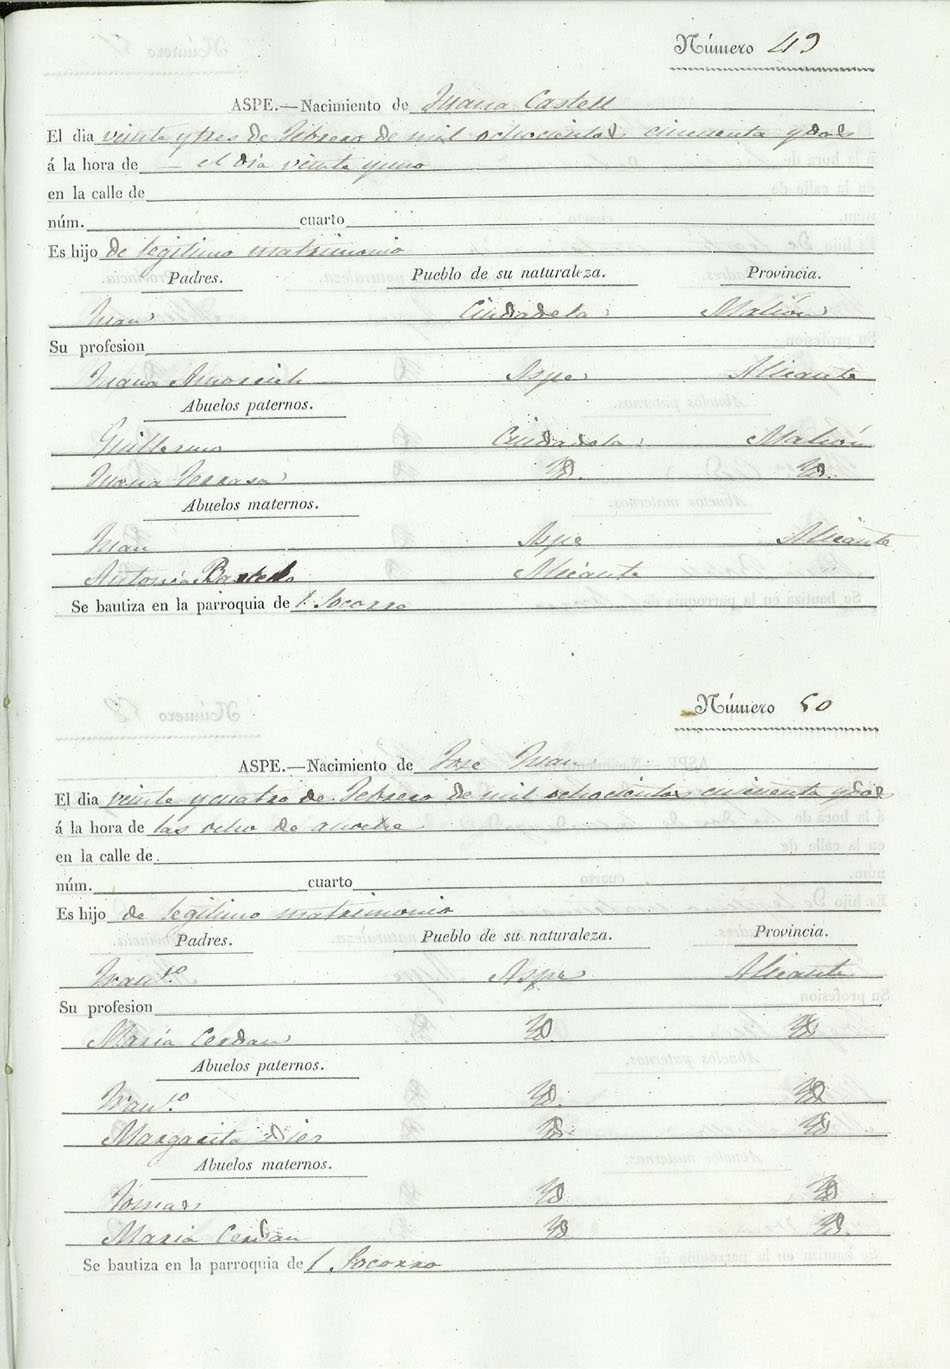 Número 49
ASPE.—Nacimiento de Juana Castell
El dia veinte y tres de Febrero de mil ochocientos cincuenta y dos
á la hora de el dia veinte y uno
en la calle de
núm. cuarto
Es hijo de legitimo matrimonio
Padres. Pueblo de su naturaleza. Provincia.
Juan Ciudadela Mahón
Su profesion
Aspe Alicante
Abuelos paternos.
Guillermo Ciudadela Mahón
Abuelos maternos.
Juan Aspe Alicante
Antonia Alicante
Se bautiza en la parroquia de Socorro
Número 50
ASPE.—Nacimiento de Jose Juan
El dia veinte y cuatro de Febrero de mil ochocientos cincuenta y dos
á la hora de las ocho de anoche
en la calle de
núm. cuarto
Es hijo de legitimo matrimonio
Padres. Pueblo de su naturaleza. Provincia.
Fran.co Aspe Alicante
Su profesion
Maria Cerdan Yd. Yd.
Abuelos paternos.
Fran.co Yd. Yd.
Margarita Dies Yd. Yd.
Abuelos maternos.
Tomas Yd. Yd.
Maria Cerdan Yd. Yd.
Se bautiza en la parroquia de Socorro